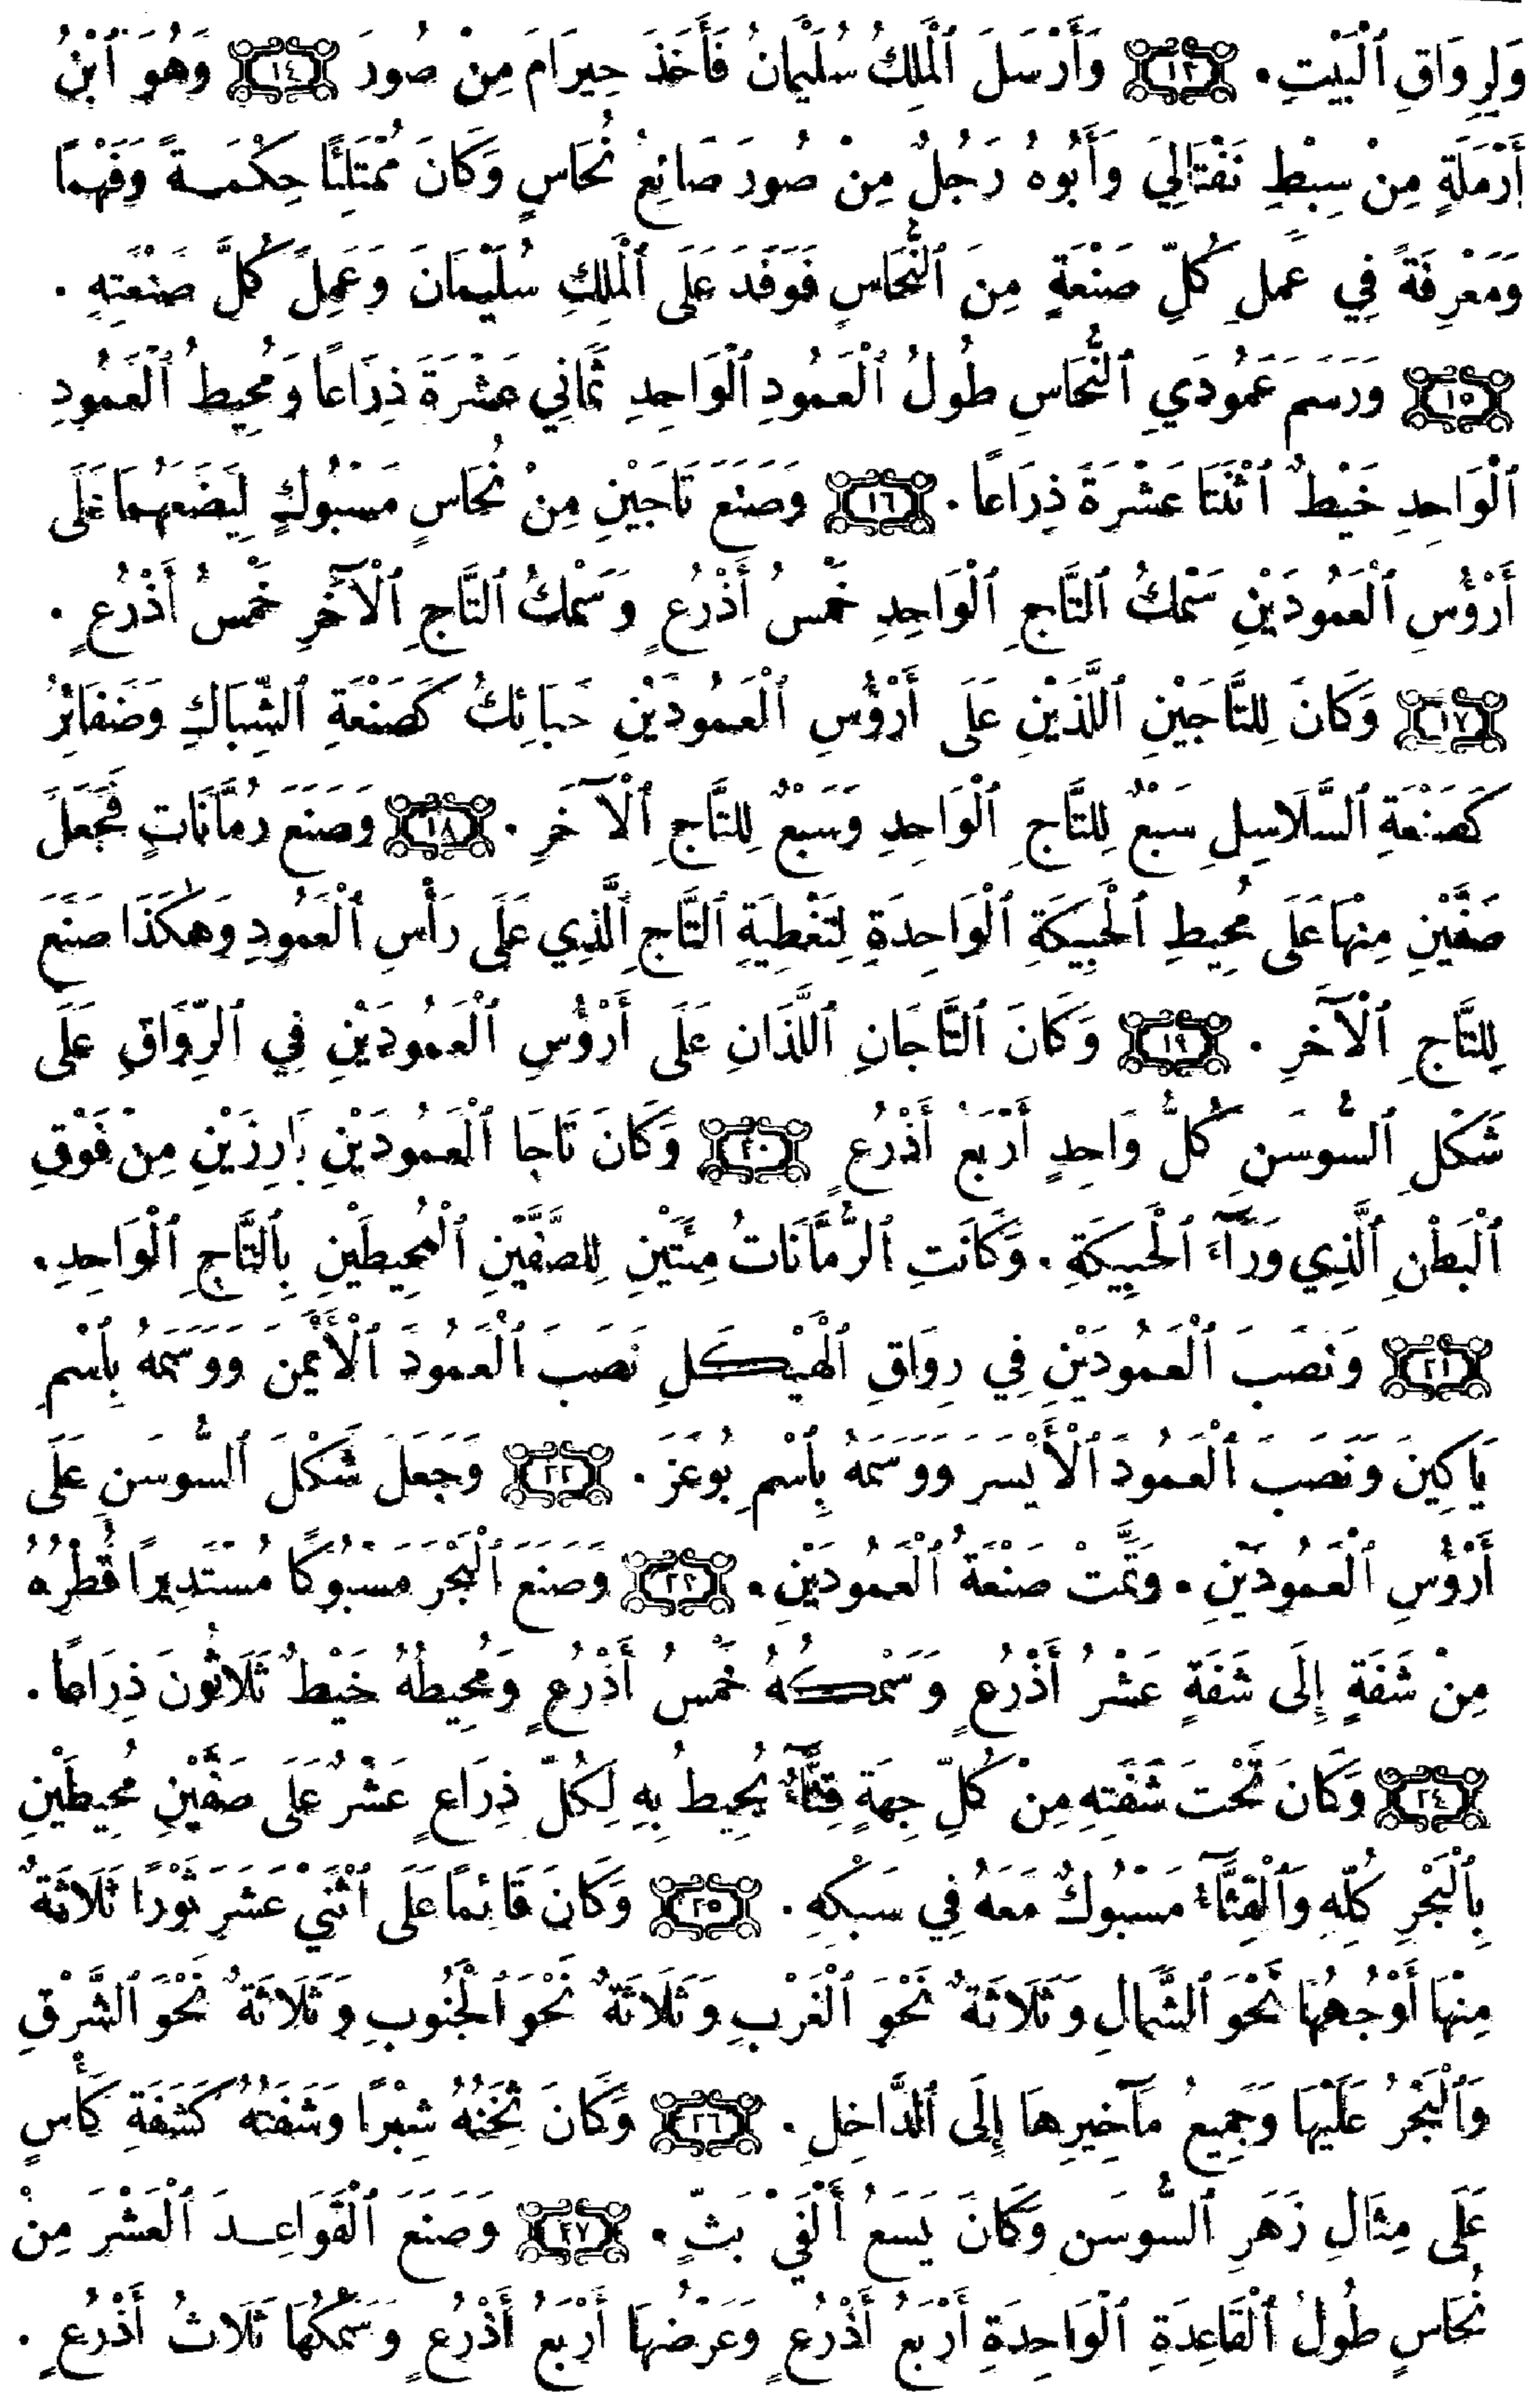 وَلِرِوَاقِ ٱلْبَيْتِ. ١٣ وَأَرْسَلَ ٱلْمَلِكُ سُلَيْمَانُ فَأَخَذَ حِيرَامَ مِنْ صُورَ ١٤ وَهُوَ ٱبْنُ
أَرْمَلَةٍ مِنْ سِبْطِ نَفْتَالِيَ وَأَبُوهُ رَجُلٌ مِنْ صُورَ صَائِغُ نُحَاسٍ وَكَانَ مُمْتَلِئًا حِكْمَةً وَفَهْمًا
وَمَعْرِفَةً فِي عَمَلِ كُلِّ صَنْعَةٍ مِنَ ٱلنُّحَاسِ فَوَفَدَ عَلَى ٱلْمَلِكِ سُلَيْمَانَ وَعَمِلَ كُلَّ صَنْعَتِهِ.
١٥ وَرَسَمَ عَمُودَيِ ٱلنُّحَاسِ طُولُ ٱلْعَمُودِ ٱلْوَاحِدِ ثَمَانِي عَشْرَةَ ذِرَاعًا وَمُحِيطُ ٱلْعَمُودِ
ٱلْوَاحِدِ خَيْطٌ ٱثْنَتَا عَشْرَةَ ذِرَاعًا. ١٦ وَصَنَعَ تَاجَيْنِ مِنْ نُحَاسٍ مَسْبُوكٍ لِيَضَعَهُمَا عَلَى
أَرْؤُسِ ٱلْعَمُودَيْنِ سَمْكُ ٱلتَّاجِ ٱلْوَاحِدِ خَمْسُ أَذْرُعٍ وَسَمْكُ ٱلتَّاجِ ٱلْآخَرِ خَمْسُ أَذْرُعٍ.
١٧ وَكَانَ لِلتَّاجَيْنِ ٱللَّذَيْنِ عَلَى أَرْؤُسِ ٱلْعَمُودَيْنِ حَبَائِكُ كَصَنْعَةِ ٱلشِّبَاكِ وَضَفَائِرُ
كَصَنْعَةِ ٱلسَّلَاسِلِ سَبْعٌ لِلتَّاجِ ٱلْوَاحِدِ وَسَبْعٌ لِلتَّاجِ ٱلْآخَرِ. ١٨ وَصَنَعَ رُمَّانَاتٍ فَجَعَلَ
صَفَّيْنِ مِنْهَا عَلَى مُحِيطِ ٱلْحَبِيكَةِ ٱلْوَاحِدَةِ لِتَغْطِيَةِ ٱلتَّاجِ ٱلَّذِي عَلَى رَأْسِ ٱلْعَمُودِ وَهٰكَذَا صَنَعَ
لِلتَّاجِ ٱلْآخَرِ. ١٩ وَكَانَ ٱلتَّاجَانِ ٱللَّذَانِ عَلَى أَرْؤُسِ ٱلْعَمُودَيْنِ فِي ٱلرِّوَاقِ عَلَى
شَكْلِ ٱلسُّوسَنِ كُلُّ وَاحِدٍ أَرْبَعُ أَذْرُعٍ ٢٠ وَكَانَ تَاجَا ٱلْعَمُودَيْنِ بَارِزَيْنِ مِنْ فَوْقِ
ٱلْبَطْنِ ٱلَّذِي وَرَآءَ ٱلْحَبِيكَةِ. وَكَانَتِ ٱلرُّمَّانَاتُ مِئَتَيْنِ لِلصَّفَّيْنِ ٱلْمُحِيطَيْنِ بِٱلتَّاجِ ٱلْوَاحِدِ.
٢١ وَنَصَبَ ٱلْعَمُودَيْنِ فِي رِوَاقِ ٱلْهَيْكَلِ نَصَبَ ٱلْعَمُودَ ٱلْأَيْمَنَ وَوَسَمَهُ بِٱسْمِ
يَاكِينَ وَنَصَبَ ٱلْعَمُودَ ٱلْأَيْسَرَ وَوَسَمَهُ بِٱسْمِ بُوعَزَ. ٢٢ وَجَعَلَ شَكْلَ ٱلسُّوسَنِ عَلَى
أَرْؤُسِ ٱلْعَمُودَيْنِ. وَتَمَّتْ صَنْعَةُ ٱلْعَمُودَيْنِ. ٢٣ وَصَنَعَ ٱلْبَحْرَ مَسْبُوكًا مُسْتَدِيرًا قُطْرُهُ
مِنْ شَفَةٍ إِلَى شَفَةٍ عَشْرُ أَذْرُعٍ وَسَمْكُهُ خَمْسُ أَذْرُعٍ وَمُحِيطُهُ خَيْطٌ ثَلَاثُونَ ذِرَاعًا.
٢٤ وَكَانَ تَحْتَ شَفَتِهِ مِنْ كُلِّ جِهَةٍ قِثَّآءٌ يُحِيطُ بِهِ لِكُلِّ ذِرَاعٍ عَشْرٌ عَلَى صَفَّيْنِ مُحِيطَيْنِ
بِٱلْبَحْرِ كُلِّهِ وَٱلْقِثَّآءُ مَسْبُوكٌ مَعَهُ فِي سَبْكِهِ. ٢٥ وَكَانَ قَائِمًا عَلَى ٱثْنَيْ عَشَرَ ثَوْرًا ثَلَاثَةٌ
مِنْهَا أَوْجُهُهَا نَحْوَ ٱلشَّمَالِ وَثَلَاثَةٌ نَحْوَ ٱلْغَرْبِ وَثَلَاثَةٌ نَحْوَ ٱلْجَنُوبِ وَثَلَاثَةٌ نَحْوَ ٱلشَّرْقِ
وَٱلْبَحْرُ عَلَيْهَا وَجَمِيعُ مَآخِيرِهَا إِلَى ٱلدَّاخِلِ. ٢٦ وَكَانَ ثِخَنُهُ شِبْرًا وَشَفَتُهُ كَشَفَةِ كَأْسٍ
عَلَى مِثَالِ زَهَرِ ٱلسُّوسَنِ وَكَانَ يَسَعُ أَلْفَيْ بَثٍّ. ٢٧ وَصَنَعَ ٱلْقَوَاعِدَ ٱلْعَشْرَ مِنْ
نُحَاسٍ طُولُ ٱلْقَاعِدَةِ ٱلْوَاحِدَةِ أَرْبَعُ أَذْرُعٍ وَعَرْضُهَا أَرْبَعُ أَذْرُعٍ وَسَمْكُهَا ثَلَاثُ أَذْرُعٍ.